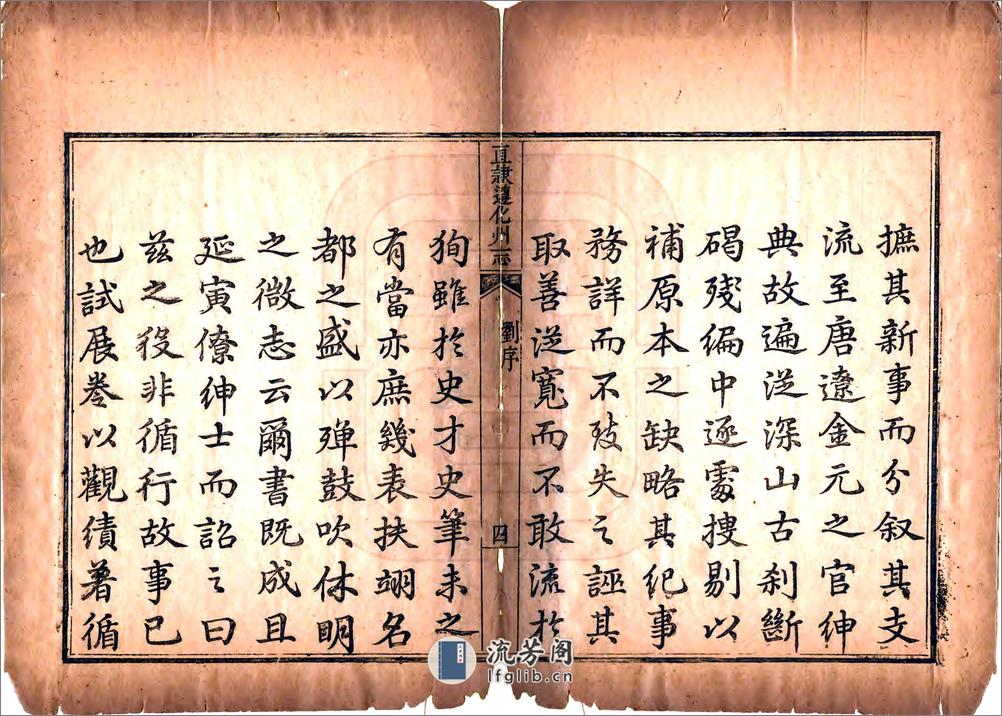 摭其新事而分叙其支
流至唐遼金元之官紳
典故遍從深山古刹斷
碣殘編中逐處搜剔以
補原本之缺略其紀事
務詳而不致失之誣其
取善從寬而不敢流於
直隸遵化州志
劉序
四
狥雖於史才史筆未之
有當亦庶幾表扶翊名
都之盛以殫鼓吹休明
之微志云爾書既成且
延寅僚紳士而詔之曰
兹之役非循行故事已
也試展卷以觀績著循
流芳阁
lfglib.cn